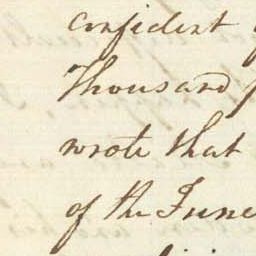 confident
Thousand
wrote that
of the June